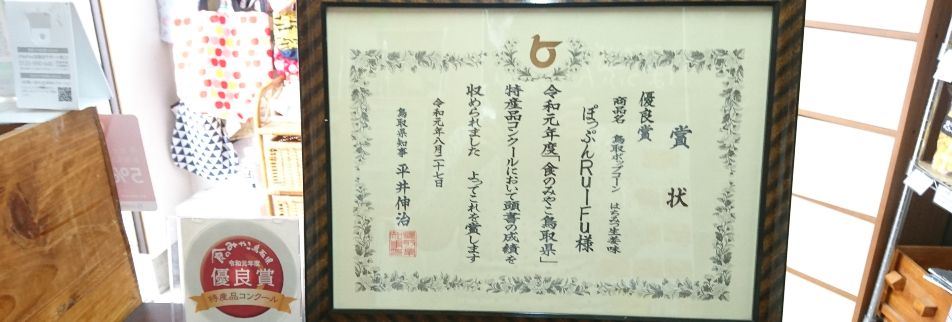 賞状
優良賞
商品名 鳥取ポップコーン はちみつ生姜味
ぽっぷんRuーFu様
令和元年度「食のみやこ鳥取県」
特産品コンクールにおいて頭書の成績を
収められました よってこれを賞します
令和元年八月二十七日
鳥取県知事 平井伸治
食のみやこ鳥取県
令和元年度
優良賞
特産品コンクール